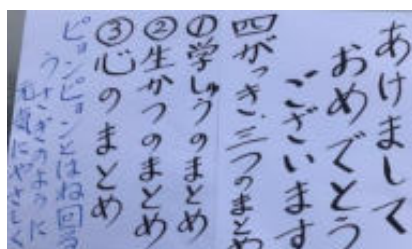 あけまして
おめでとう
ございます
四がっき、三つのまとめ
①学しゅうのまとめ
②生かつのまとめ
③心のまとめ
ピョンピョンとはね回る
うさぎのように
元気にやさしく